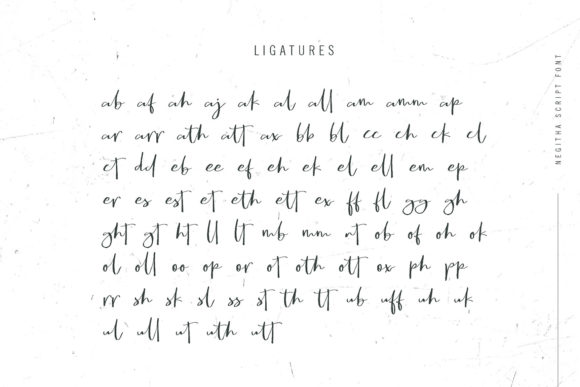 LIGATURES
ab af ah aj ak al all am amm ap
ar arr ath att ax bb bl cc ch ck cl
ct dd eb ee ef eh ek el ell em ep
er es est et eth ett ex ff fl gg gh
ght gt ht ll lt mb mm nt ob of oh ok
ol oll oo op or ot oth ott ox ph pp
rr sh sk sl ss st th tt ub uff uh uk
ul ull ut uth utt
NEGITHA SCRIPT FONT